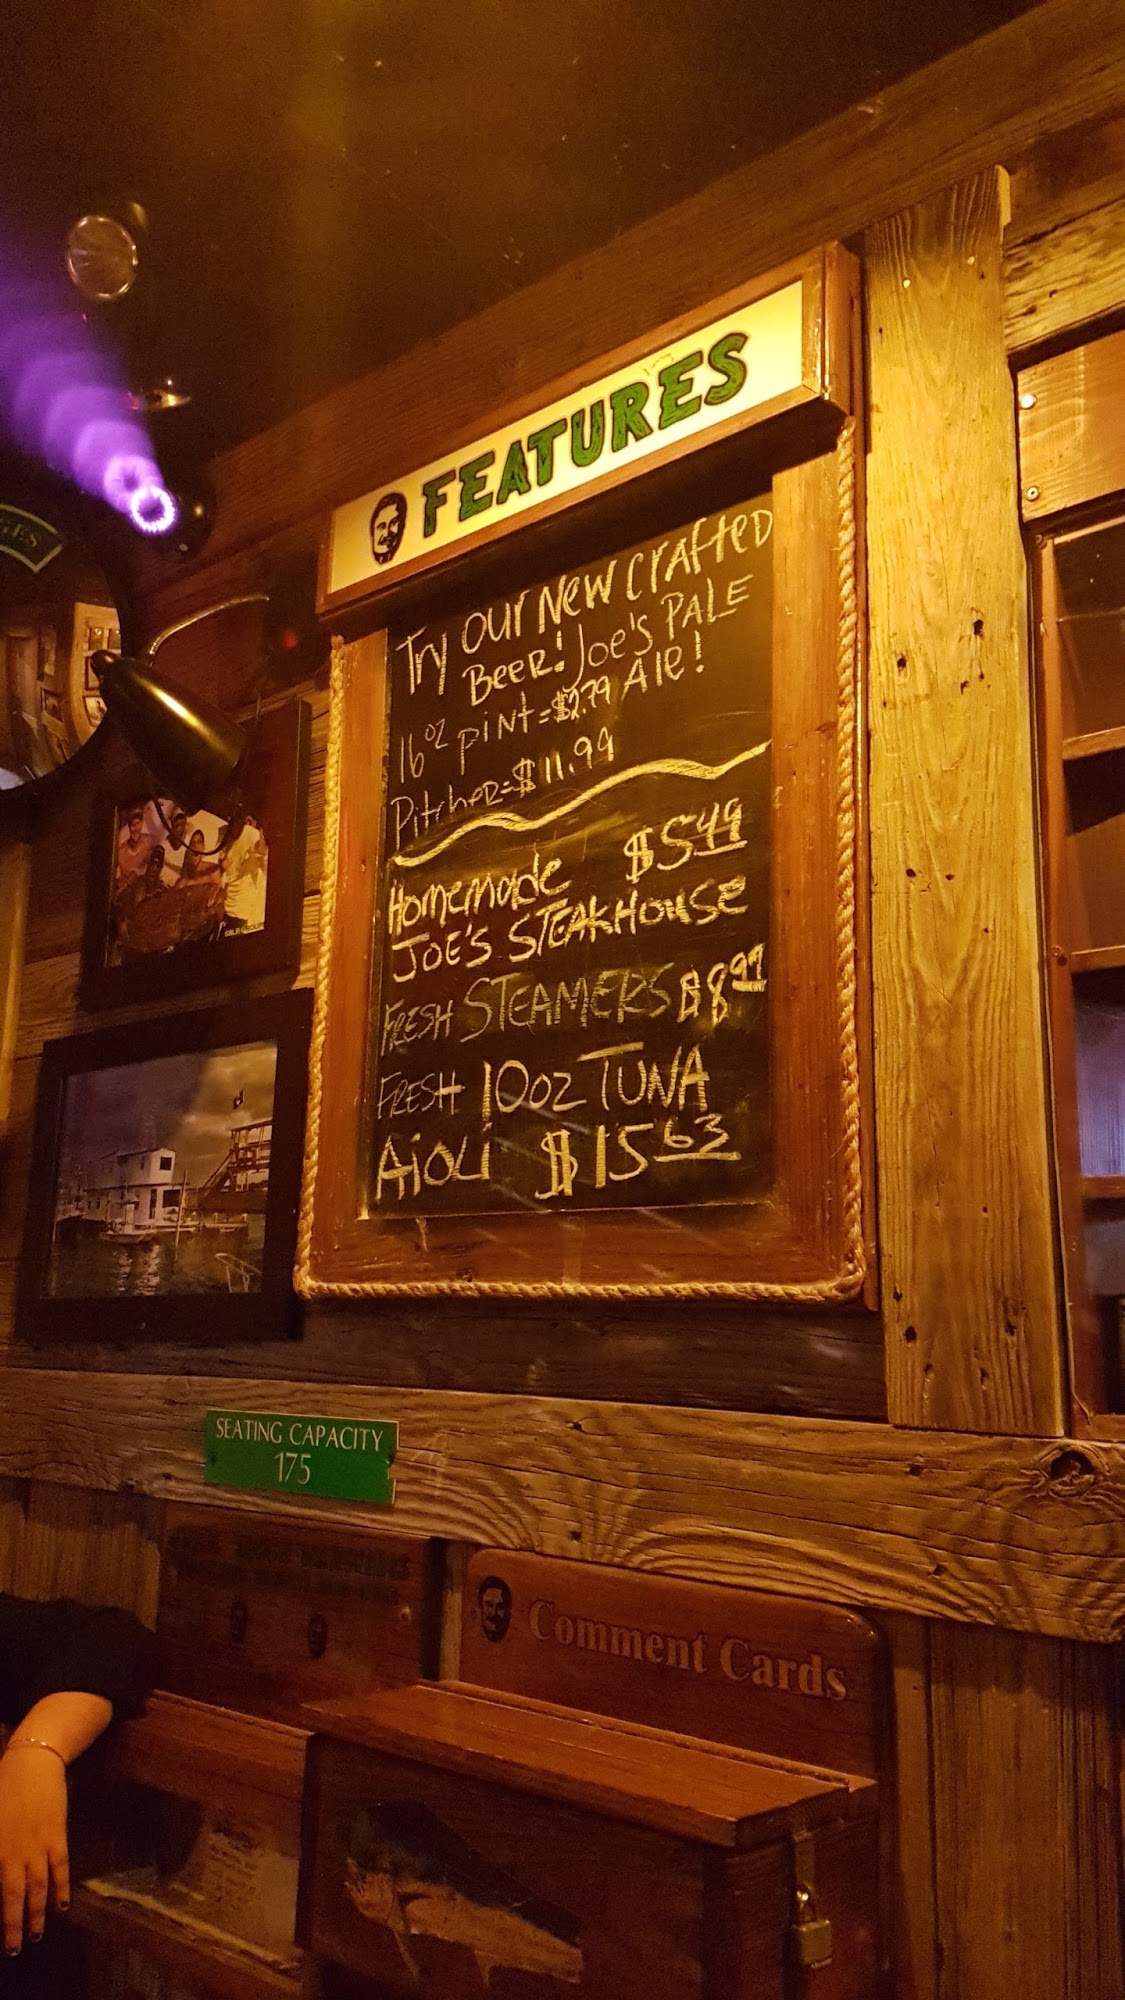 FEATURES
Try our New Crafted
Beer! Joe's PALE
Ale!
16oz pint = $2.79
Pitcher = $11.99
Homemade $5.49
JOE'S STEAKHOUSE
FRESH STEAMERS $8.97
FRESH 10oz TUNA
Aioli $15.63
SEATING CAPACITY
175
Comment Cards